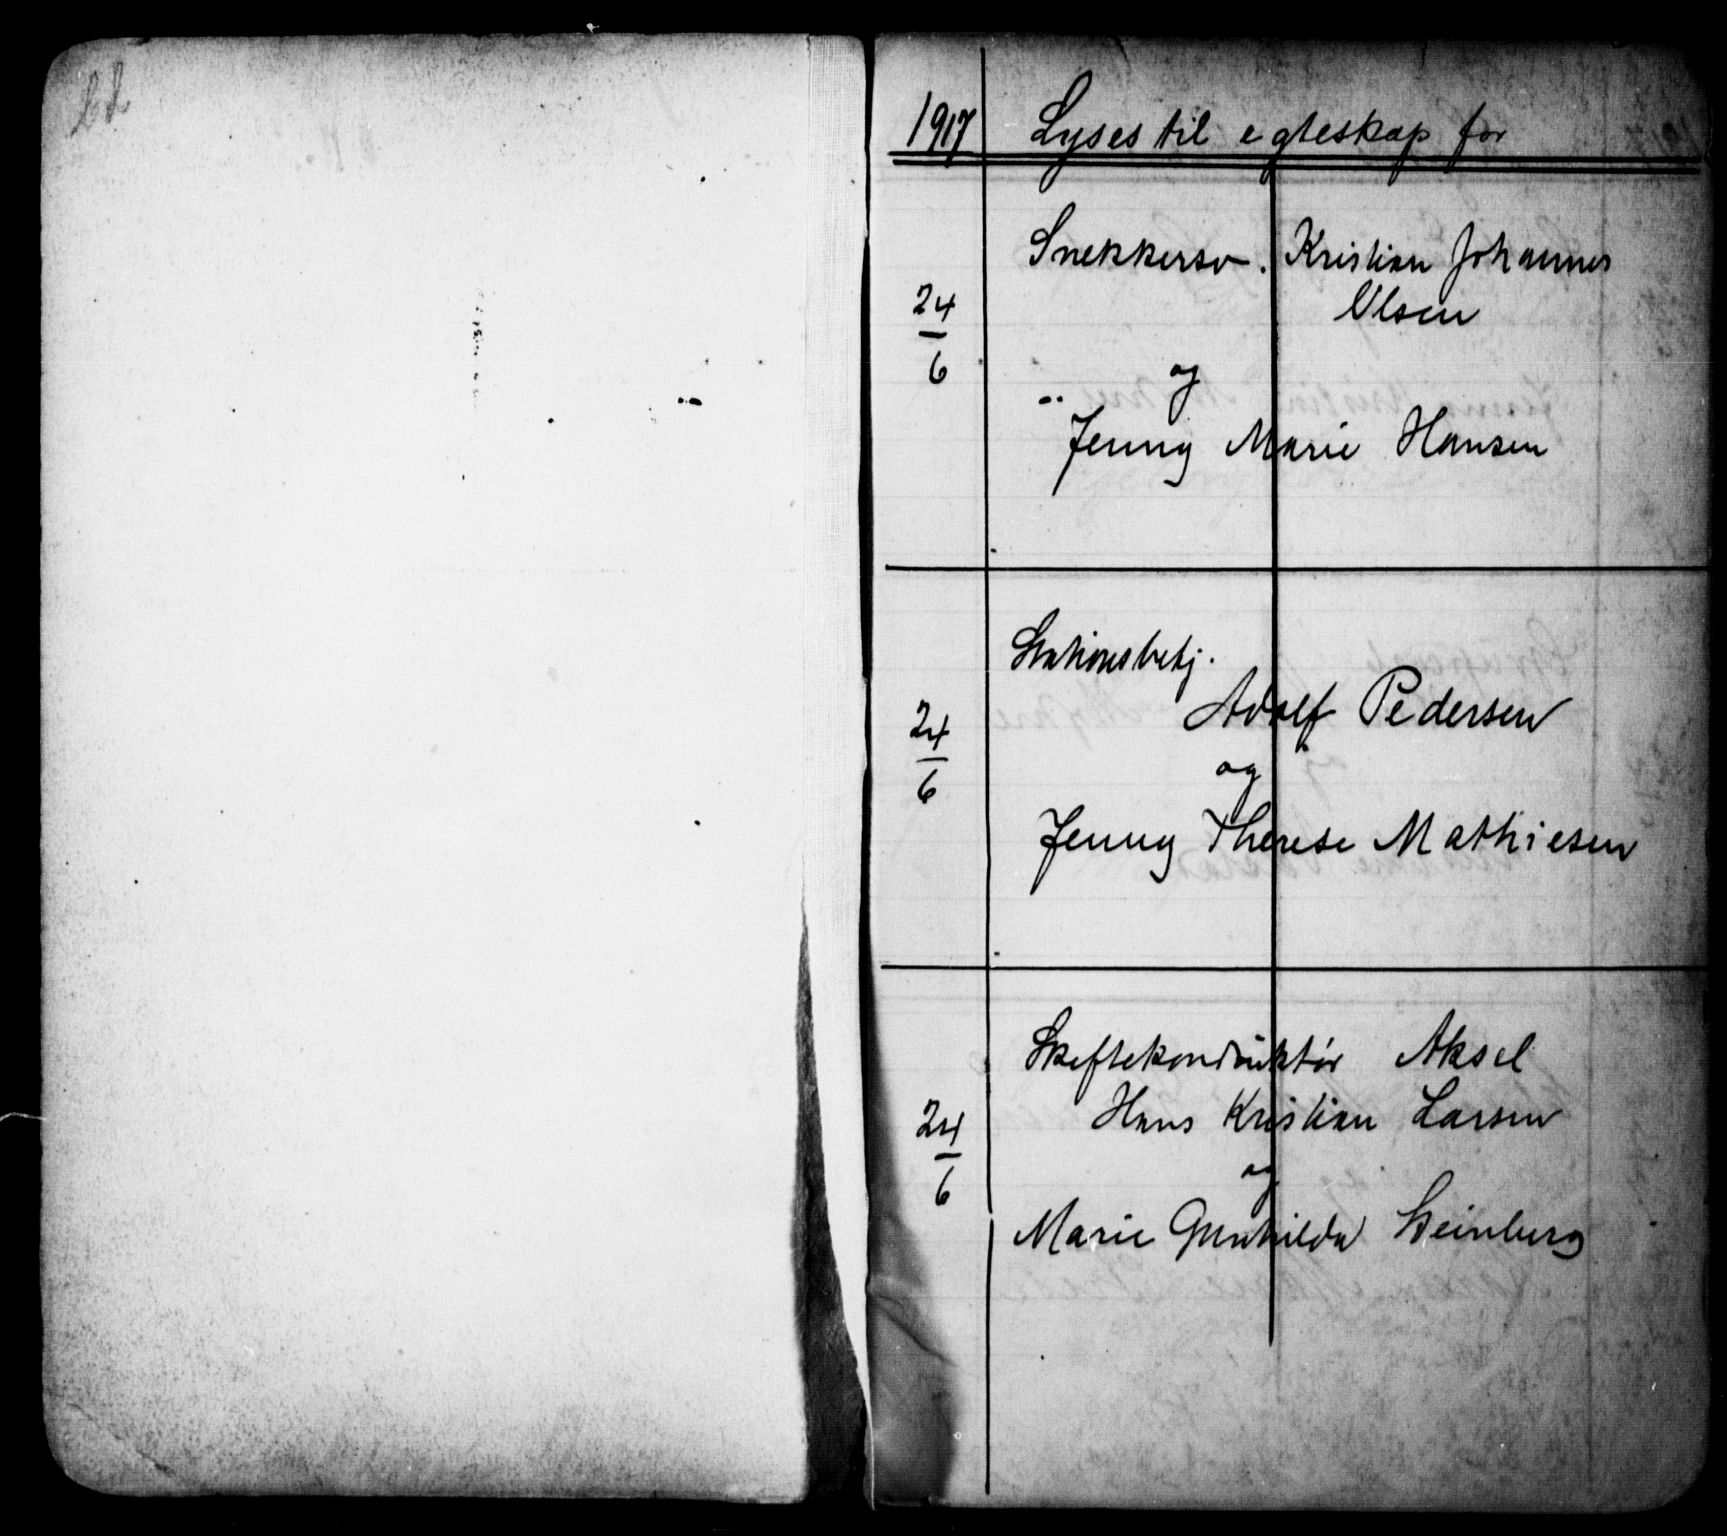 1917 Lyses til egteskap for
Snekkersv. Kristian Johannes
Olsen
24
6
og
Jenny Marie Hansen
Stationsbetj.
Adolf Pedersen
24
6
og
Jenny Therese Mathiesen
Skiftekonduktör Aksel
Hans Kristian Larsen
24
6
og
Marie Gunhilda Steinberg